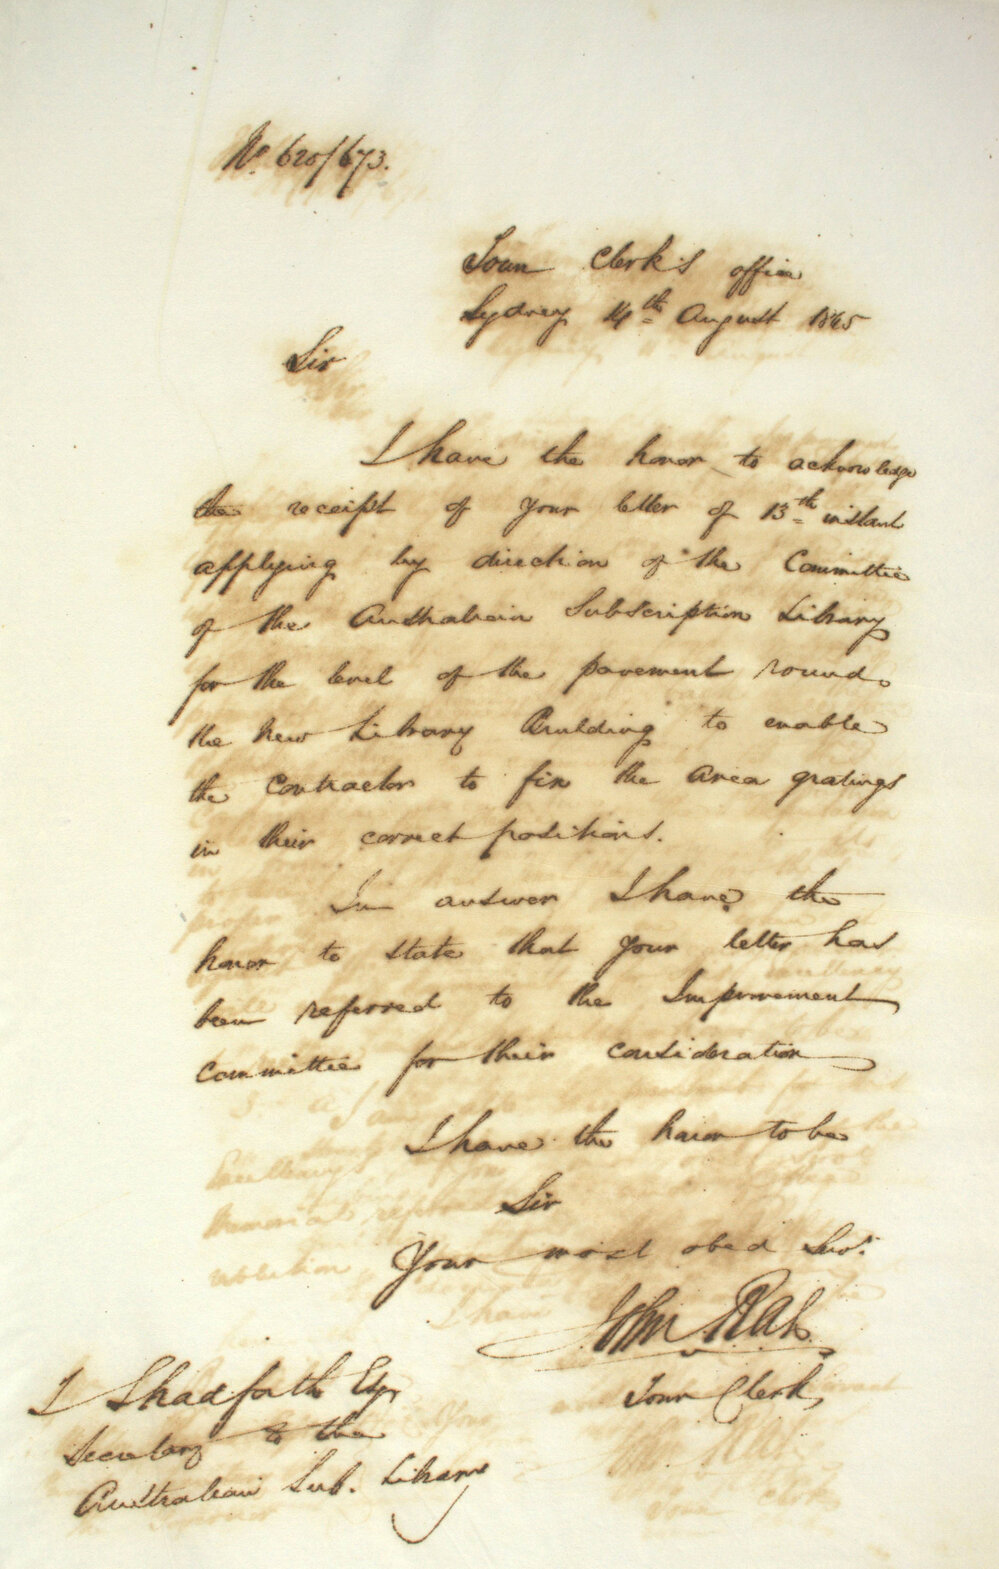 No 620/673.
Town Clerk's office
Sydney 14th August 1845
Sir
I have the honor to acknowledge
the receipt of your letter of 13th instant
applying by direction of the Committee
of the Australian Subscription Library
for the level of the pavement round
the New Library Building to enable
the Contractor to fix the Area gratings
in their correct positions.
In answer I have the
honor to state that your letter has
been referred to the Improvement
Committee for their consideration
I have the honor to be
Sir
Your most obed Servt
John Rae
Town Clerk
T Shadforth Esqr
Secretary to the
Australian Sub. Library